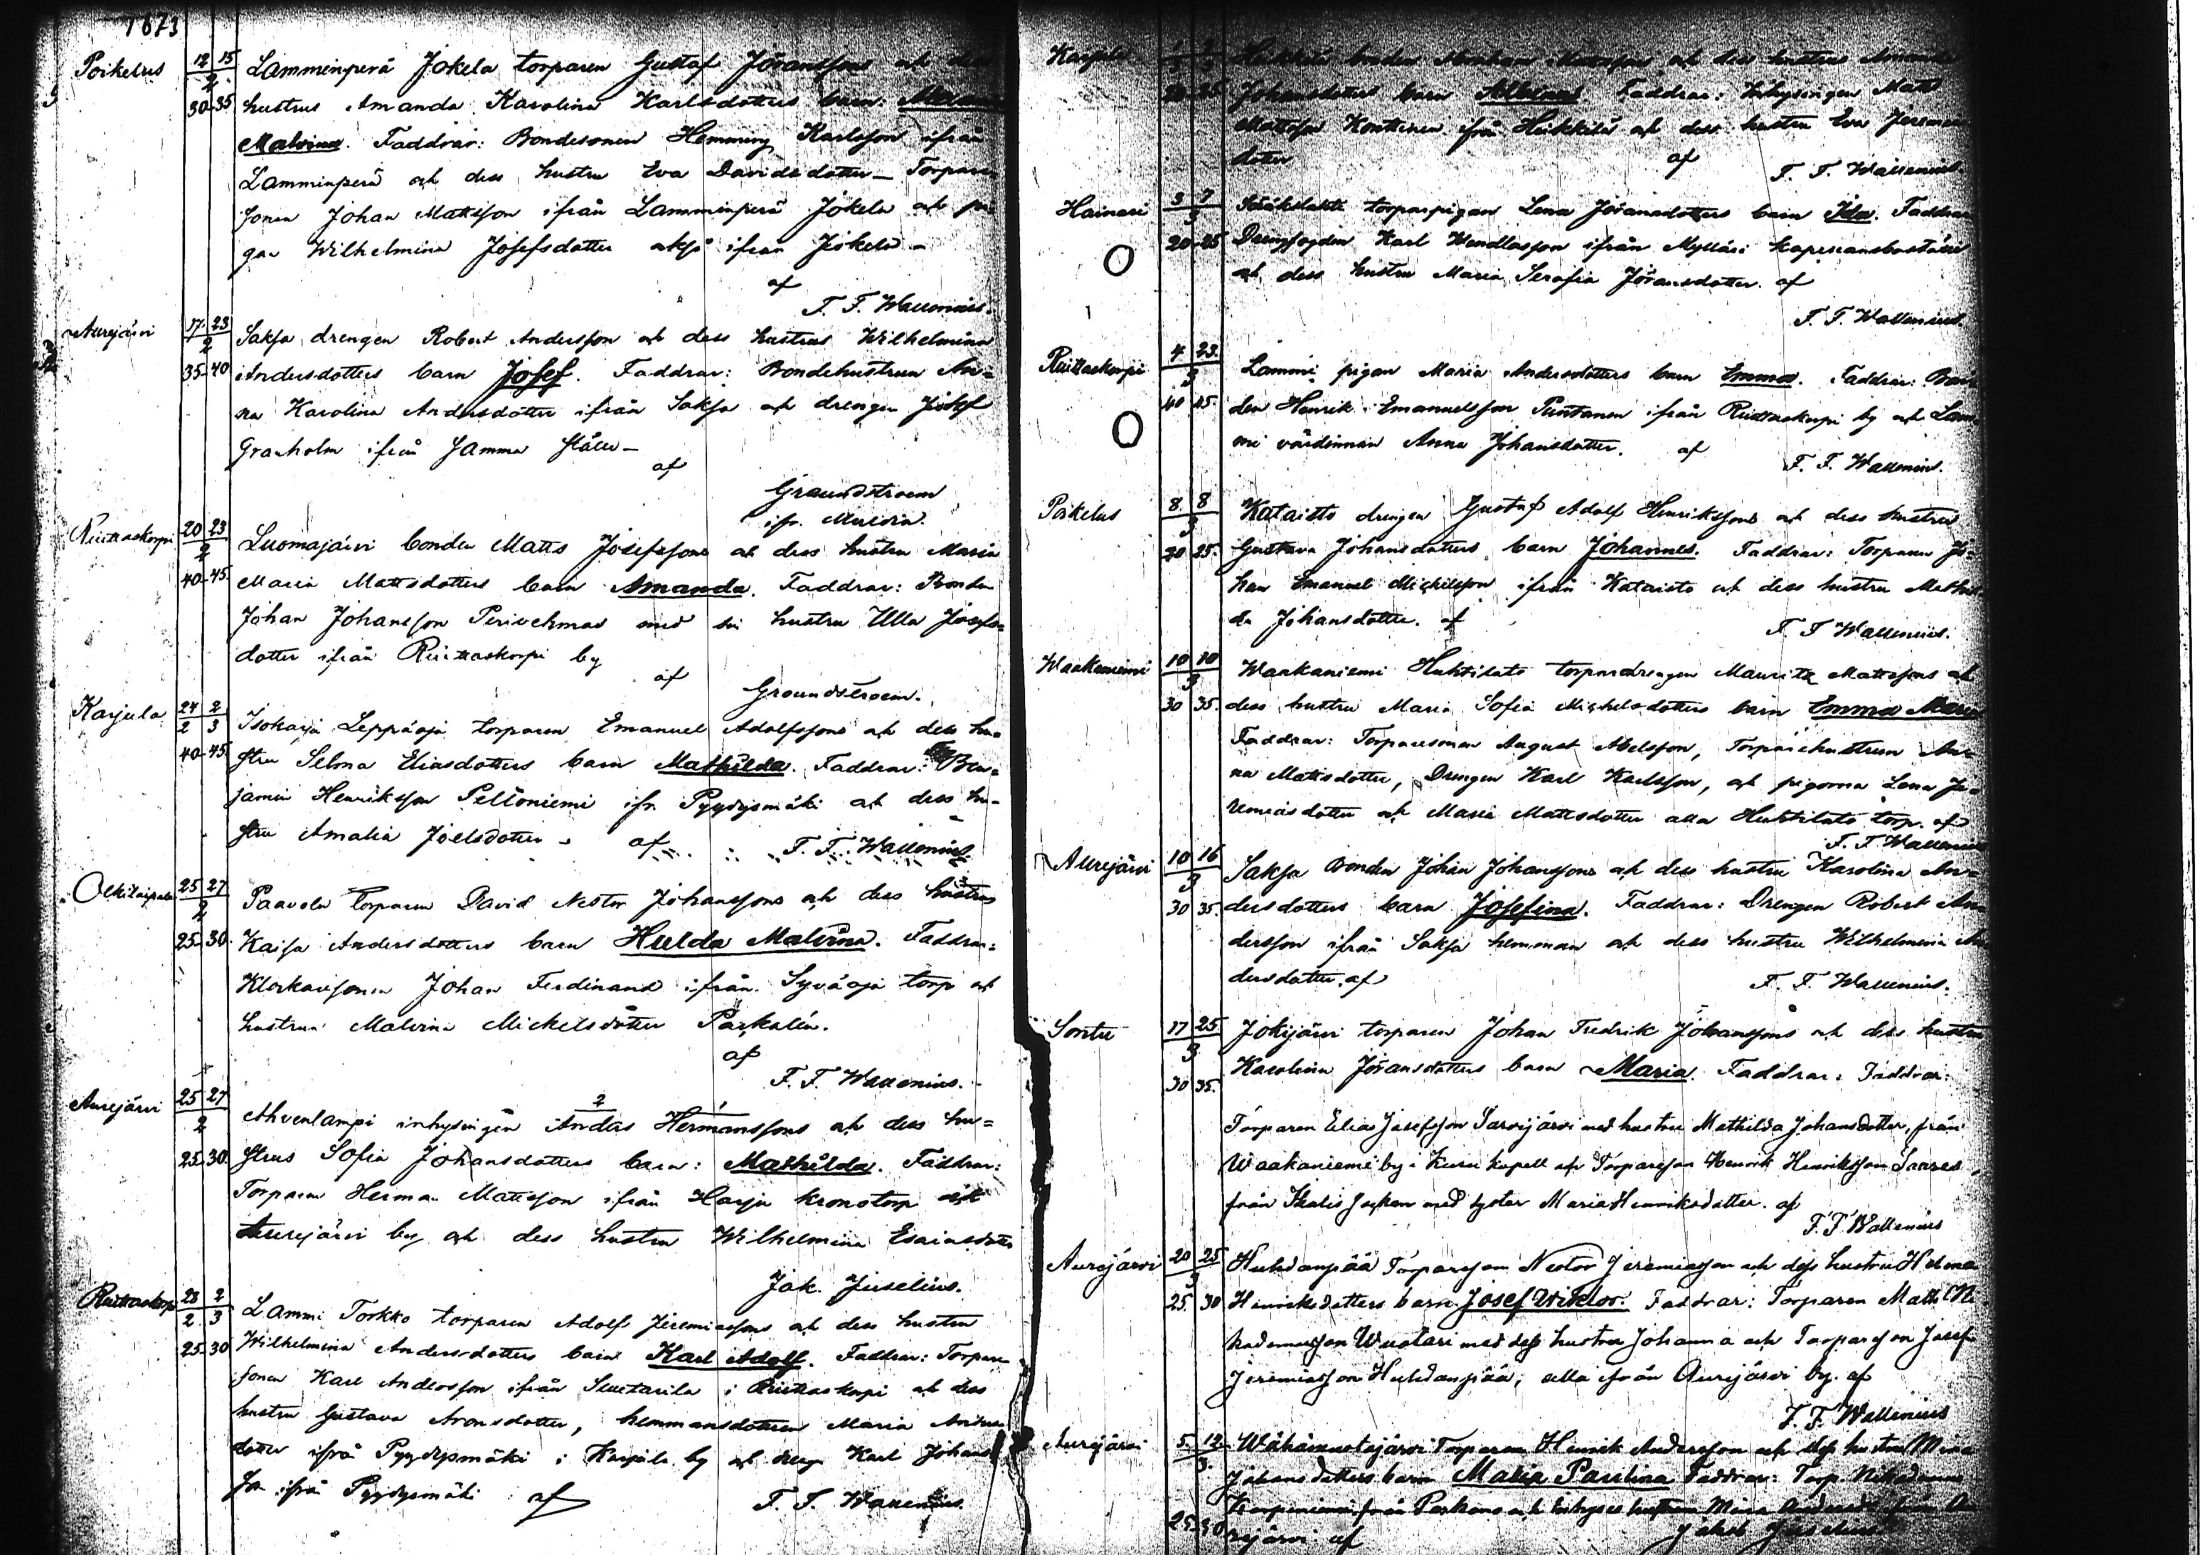 1873
Poikelus 12 15 Lamminperä Jokela torparen Gustaf Jöranssons och
2
30-35 hustrus Amanda Karolina Karlsdotters barn:
Malvina. Faddrar: Bondesonen Hemming Karlsson ifrån
Lamminperä och dess hustru Eva Davidsdotter – Torpare
sonen Johan Mattsson ifrån Lamminperä Jokela och pi
gan Wilhelmina Josefsdotter också ifrån Jokela –
af
F. F. Wallenius.
Aurejärvi 17 23 Saksa drengen Robert Andersson och dess hustrus Wilhelmina
2
35-40 Andersdotters barn Josef. Faddrar: Bondehustrun An=
na Karolina Andersdotter ifrån Saksa och drengen Josef
Granholm ifrån samma ställe –
af
Graundstroem
ifr.
Riuttaskorpi 20 23 Luomajärvi bonden Matts Josefssons och dess hustru Maria
2
40-45 Maria Mattsdotters barn Amanda. Faddrar: Bonden
Johan Johansson Perivehmas med sin hustru Ulla Josefs=
dotter ifrån Riuttaskorpi by
af
Groundstroem.
Karjula 24 2 Isokarja Leppäoja torparen Emanuel Adolfssons och dess hu=
2 3
40-45 stru Selma Eliasdotters barn Mathilda. Faddrar: Ben=
jamin Henriksson Peltoniemi ifr. Pyydysmäki och dess hu=
stru Amalia Joelsdotter – af F. F. Wallenius.
Olkitaipale 25 27 Paavola torparen David Nestor Johanssons och dess hustrus
2
25-30 Kaisa Andersdotters barn Hulda Malvina. Faddrar:
Klockaresonen Johan Ferdinand ifrån Syväoja torp och
hustrun Malvina Mickelsdotter Parkalén.
af
F. F. Wallenius.
Aurejärvi 25 27 Ahvenlampi inhysingen Anders Hermanssons och dess hu=
2
25-30 strus Sofia Johansdotters barn: Mathilda. Faddrar:
Torparen Herman Mattsson ifrån Harju kronotorp
Aurejärvi by och dess hustru Wilhelmina Esaiasdotter
Jak. Juselius.
Riuttaskorpi 28 2 Lammi Torkko torparen Adolf Jeremiassons och dess hustru
2 3
25-30 Wilhelmina Andersdotters barn Karl Adolf. Faddrar: Torpare
sonen Karl Andersson ifrån i Riuttaskorpi och dess
hustru Gustava Aronsdotter, hemmansdottren Maria
dotter ifrån Pyydysmäki i Karjula by och dreng Karl Johans
son ifrån Pyydysmäki af F. F. Wallenius.
Karjula Heikkilä bonden och dess hustrus
Johansdotters barn Faddrar: Inhysingen Matts
Mattsson Konttinen ifrån Heikkilä och dess hustru Eva Jeremias
dotter af
F. F. Wallenius.
Hainari 3 7 torparpigan Lena Jöransdotters barn Ida. Faddrar
3
20-25 Drengfogden Karl Wendlasson ifrån Mylläri kapellansboställe
och dess hustru Maria Serafia Jöransdotter. af
F. F. Wallenius.
Riuttaskorpi 4 23 Lammi pigan Maria Andersdotters barn Emma. Faddrar: Bon
3
40 45 den Henrik Emanuelsson Puntanen ifrån Riuttaskorpi by och Lam
mi värdinnan Anna Johansdotter. af
F. F. Wallenius.
Poikelus 8 8 Kataisto drengen Gustaf Adolf Henrikssons och dess hustrus
3
20 25 Gustava Johansdotters barn Johannes. Faddrar: Torparen Jo=
han Emanuel Mickelsson ifrån Kataisto och dess hustru Mathil
da Johansdotter. af
F. F. Wallenius.
Waakaniemi 10 10 Waakaniemi Huhtilato torpardrengen Mauritz Mattssons och
3
30 35 dess hustru Maria Sofia Mickelsdotters barn Emma Maria
Faddrar: Torparesonen August Abelsson, Torparehustrun An=
na Mattsdotter, Drengen Karl Karlsson, och pigorna Lena Je=
remiasdotter och Maria Mattsdotter alla Huhtilato torp. af
F. F. Wallenius
Aurejärvi 10 16 Saksa Bonden Johan Johanssons och dess hustru Karolina An=
3
30 35 dersdotters barn Josefina. Faddrar: Drengen Robert An
dersson ifrån Saksa hemman och dess hustru Wilhelmina An
dersdotter. af
F. F. Wallenius.
Sontu 17 25 Jokijärvi torparen Johan Fredrik Johanssons och dess hustru
3
30 35 Karolina Jöransdotters barn Maria. Faddrar: Faddrar:
Torparen Elias Josefsson Sarvijärvi med hustru Mathilda Johansdotter, från
Waakaniemi by i Kuru kapell och Torpareson Henrik Henriksson
från Ikalis socken med syster Maria Henriksdotter. af
F. F. Wallenius
Aurejärvi 20 25 Huhdanpää Torpareson Nestor Jeremiasson och dess hustru Helma
3
25 30 Henriksdotters barn Josef Wiktor. Faddrar: Torparen Matts Ni
kodemusson Wuotari med dess hustru Johanna och Torpareson Josef
Jeremiasson Huhdanpää, alla ifrån Aurejärvi by. af
F. F. Wallenius
Aurejärvi 5 12 Torparen Henrik Andersson och dess hustru Mina
3
Johansdotters barn Maria Paulina Faddrar: Torp. Nikodemus
från Parkano och Inhyses hustrun Mina från Au
25-30 rejärvi af Jakob Juselius